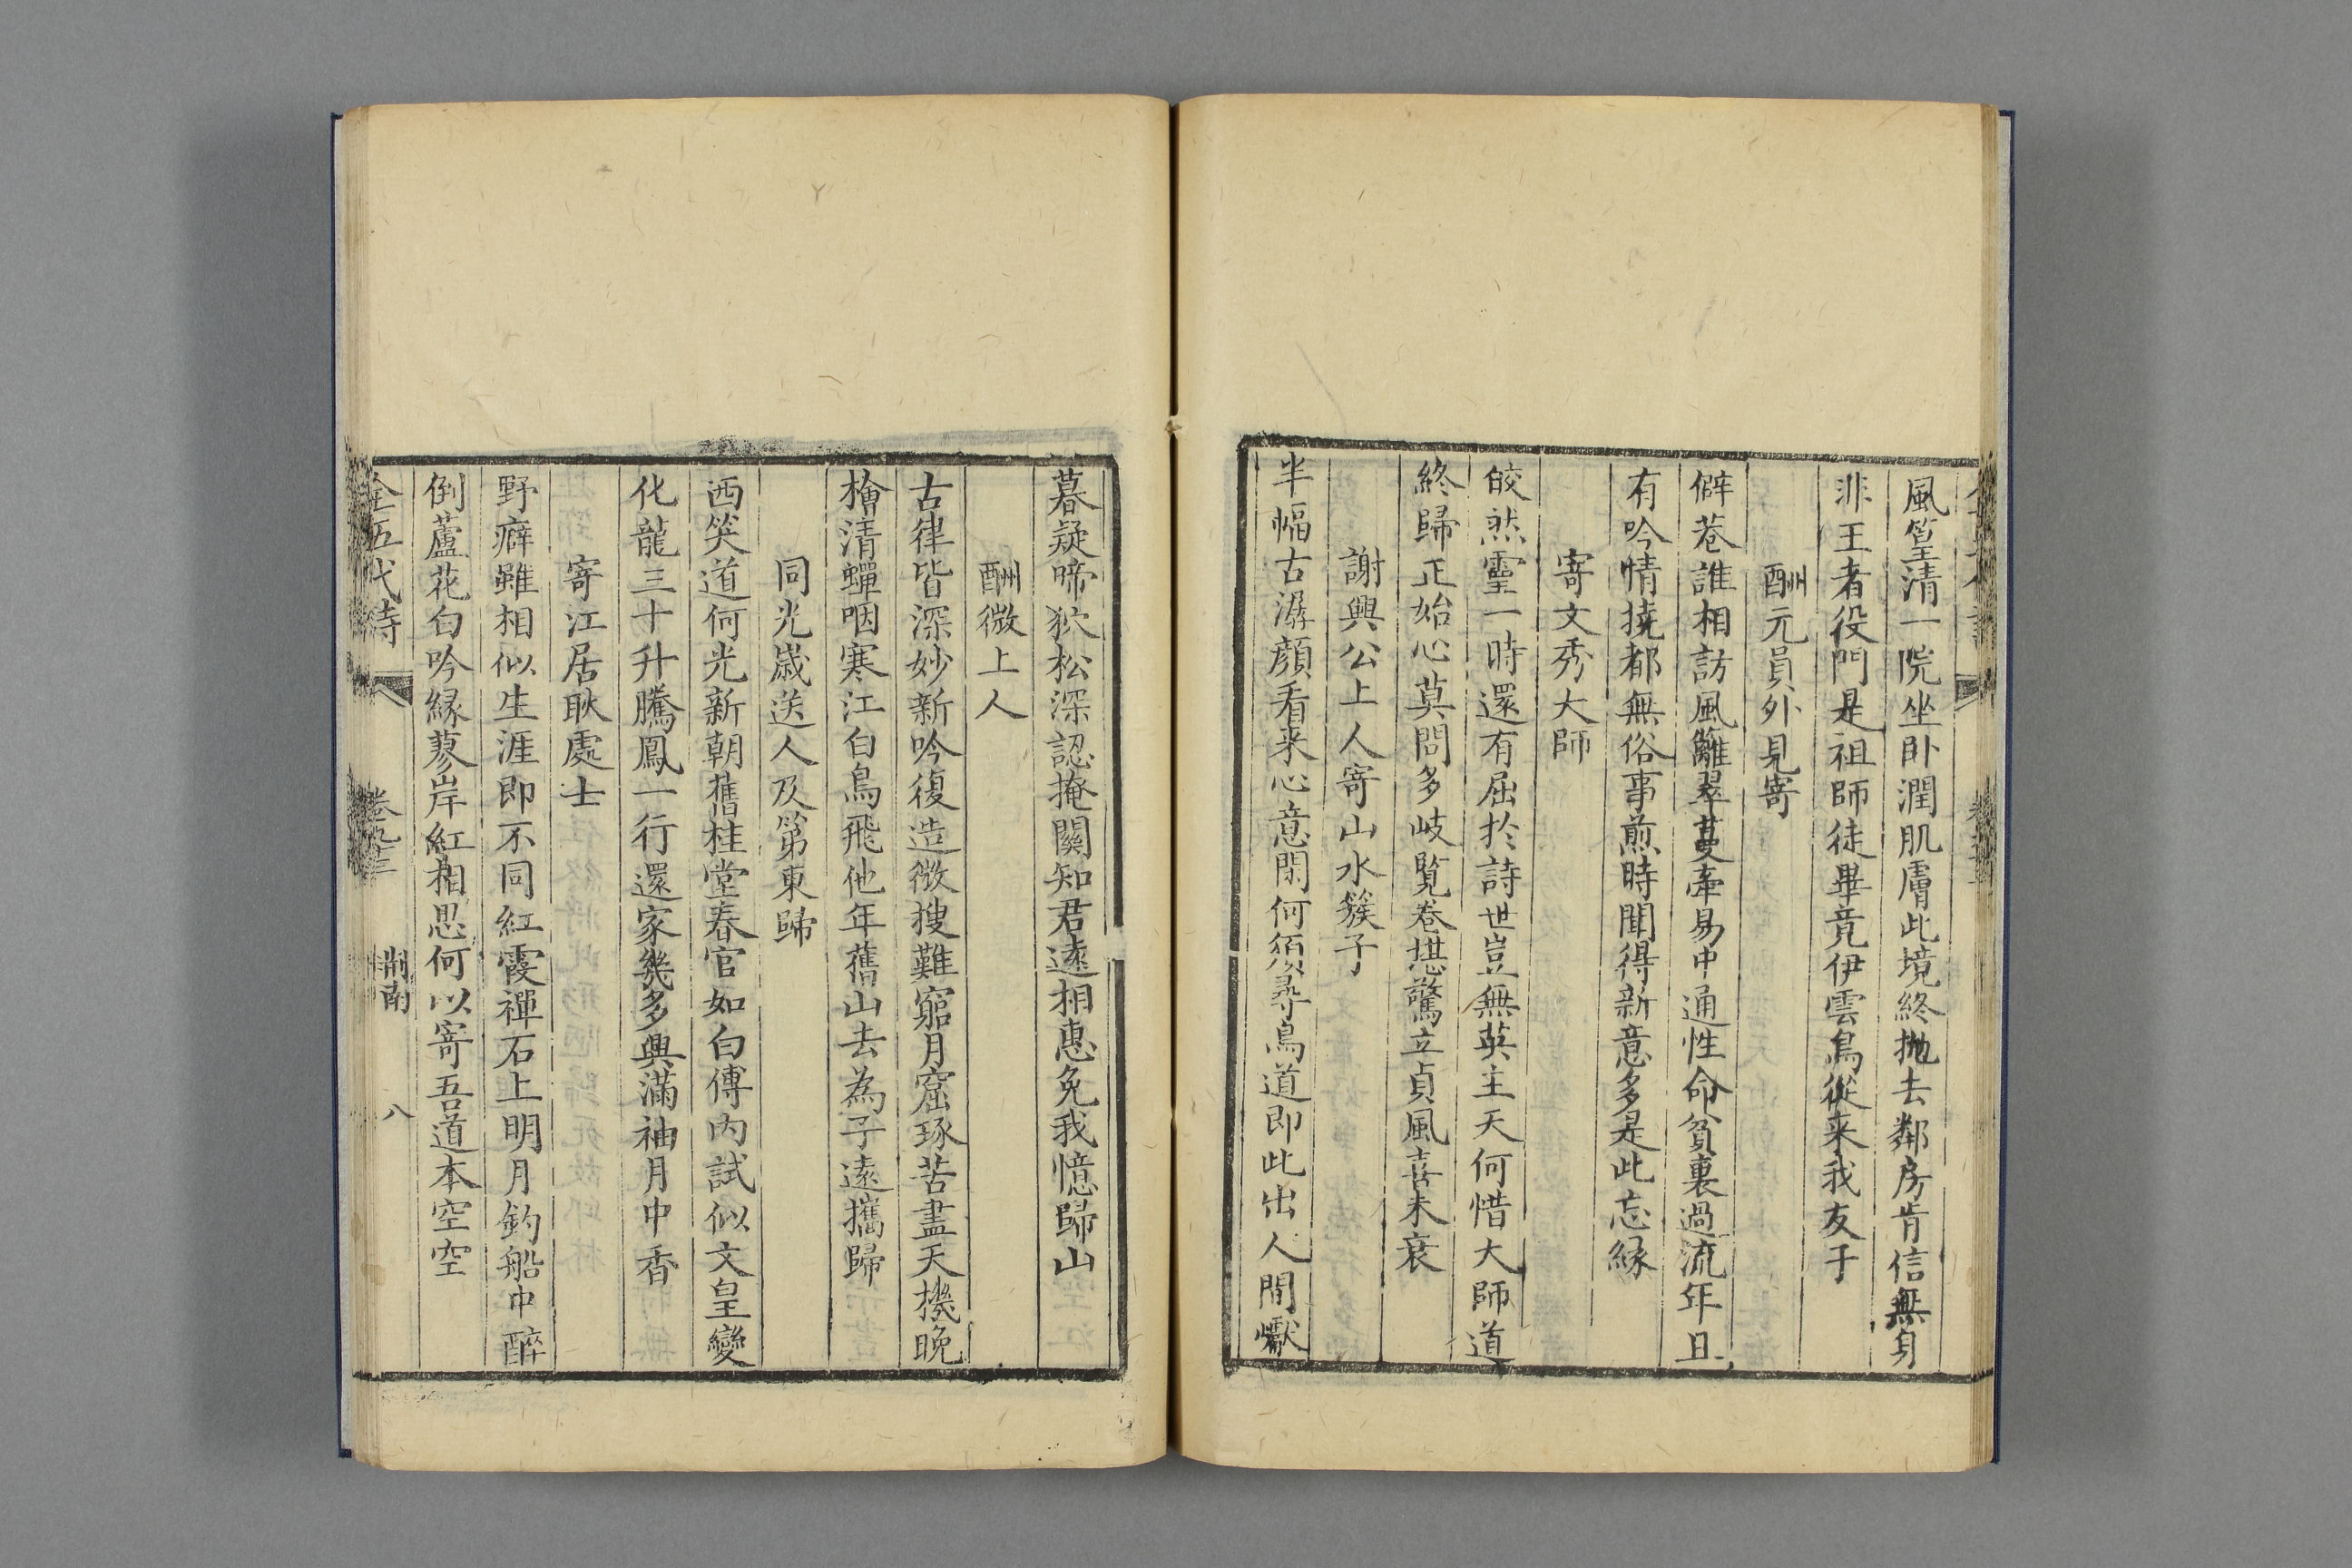 風篁清一院坐卧潤肌膚此境終抛去鄰房肯信無身
非王者役門是祖師徒畢竟伊雲鳥從来我友于
酬元員外見寄
僻巷誰相訪風籬翠蔓牽易中通性命貧裏過流年且
有吟情撓都無俗事煎時聞得新意多是此忘縁
寄文秀大師
皎然靈一時還有屈扵詩世豈無英主天何惜大師道
終歸正始心莫問多岐覧卷堪驚立貞風喜未衰
謝興公上人寄山水簇子
半幅古潺顔看来心意閑何須尋鳥道即此出人間𤢹
暮疑啼狖松深認掩關知君遠相惠免我憶歸山
酬微上人
古律皆深妙新吟復造微搜難窮月窟琢苦盡天機晚
檜清蟬咽寒江白鳥飛他年舊山去為子遠攜歸
同光歳送人及第東歸
西笑道何光新朝舊桂堂春官如白傅内試似文皇變
化龍三十升騰鳳一行還家幾多興滿袖月中香
寄江居耿處士
野癖雖相似生涯即不同紅霞禪石上明月釣船中醉
倒蘆花白吟縁蓼岸紅相思何以寄吾道本空空
全五代詩 卷九十三 荆南 八